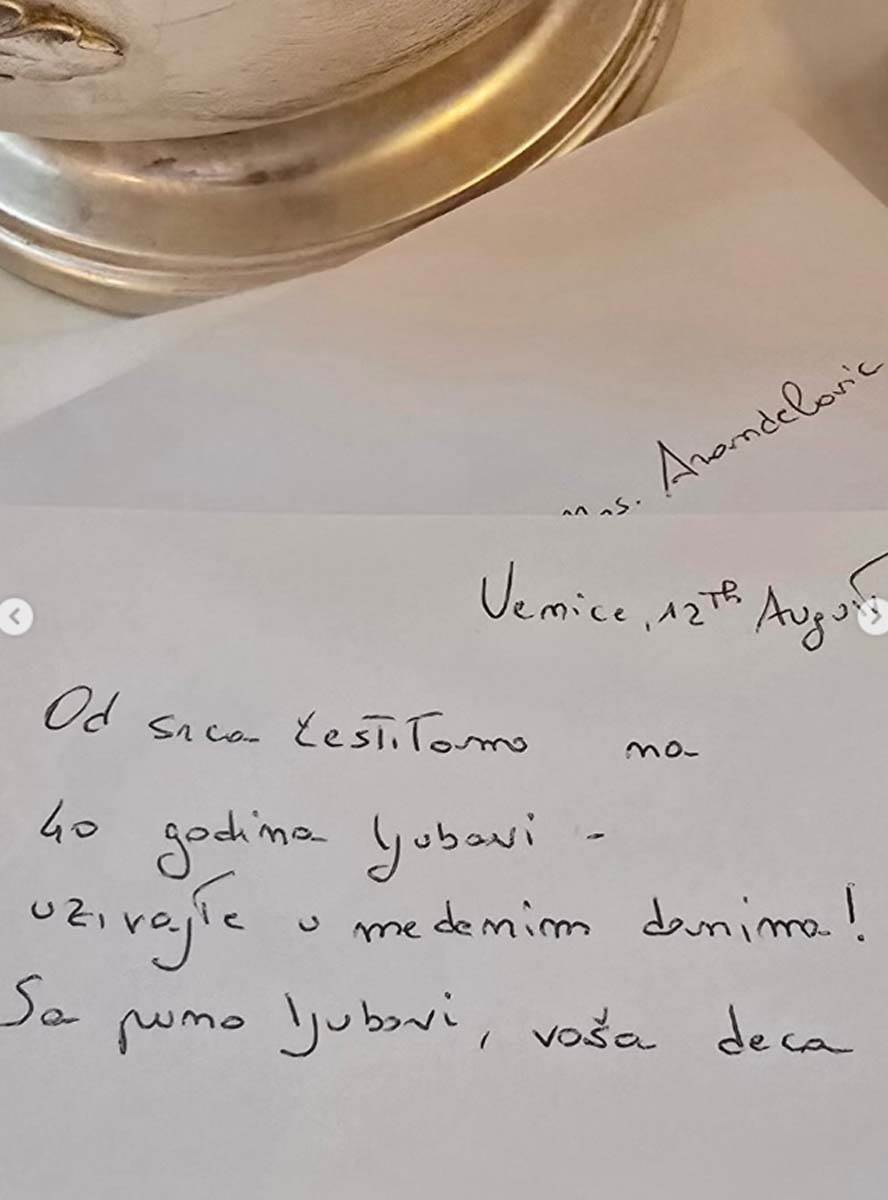 Mrs. Arandelovic
Venice, 12th August
Od srca čestitamo na
40 godina ljubavi -
uzivajte u medenim danima!
Sa puno ljubavi, vaša deca